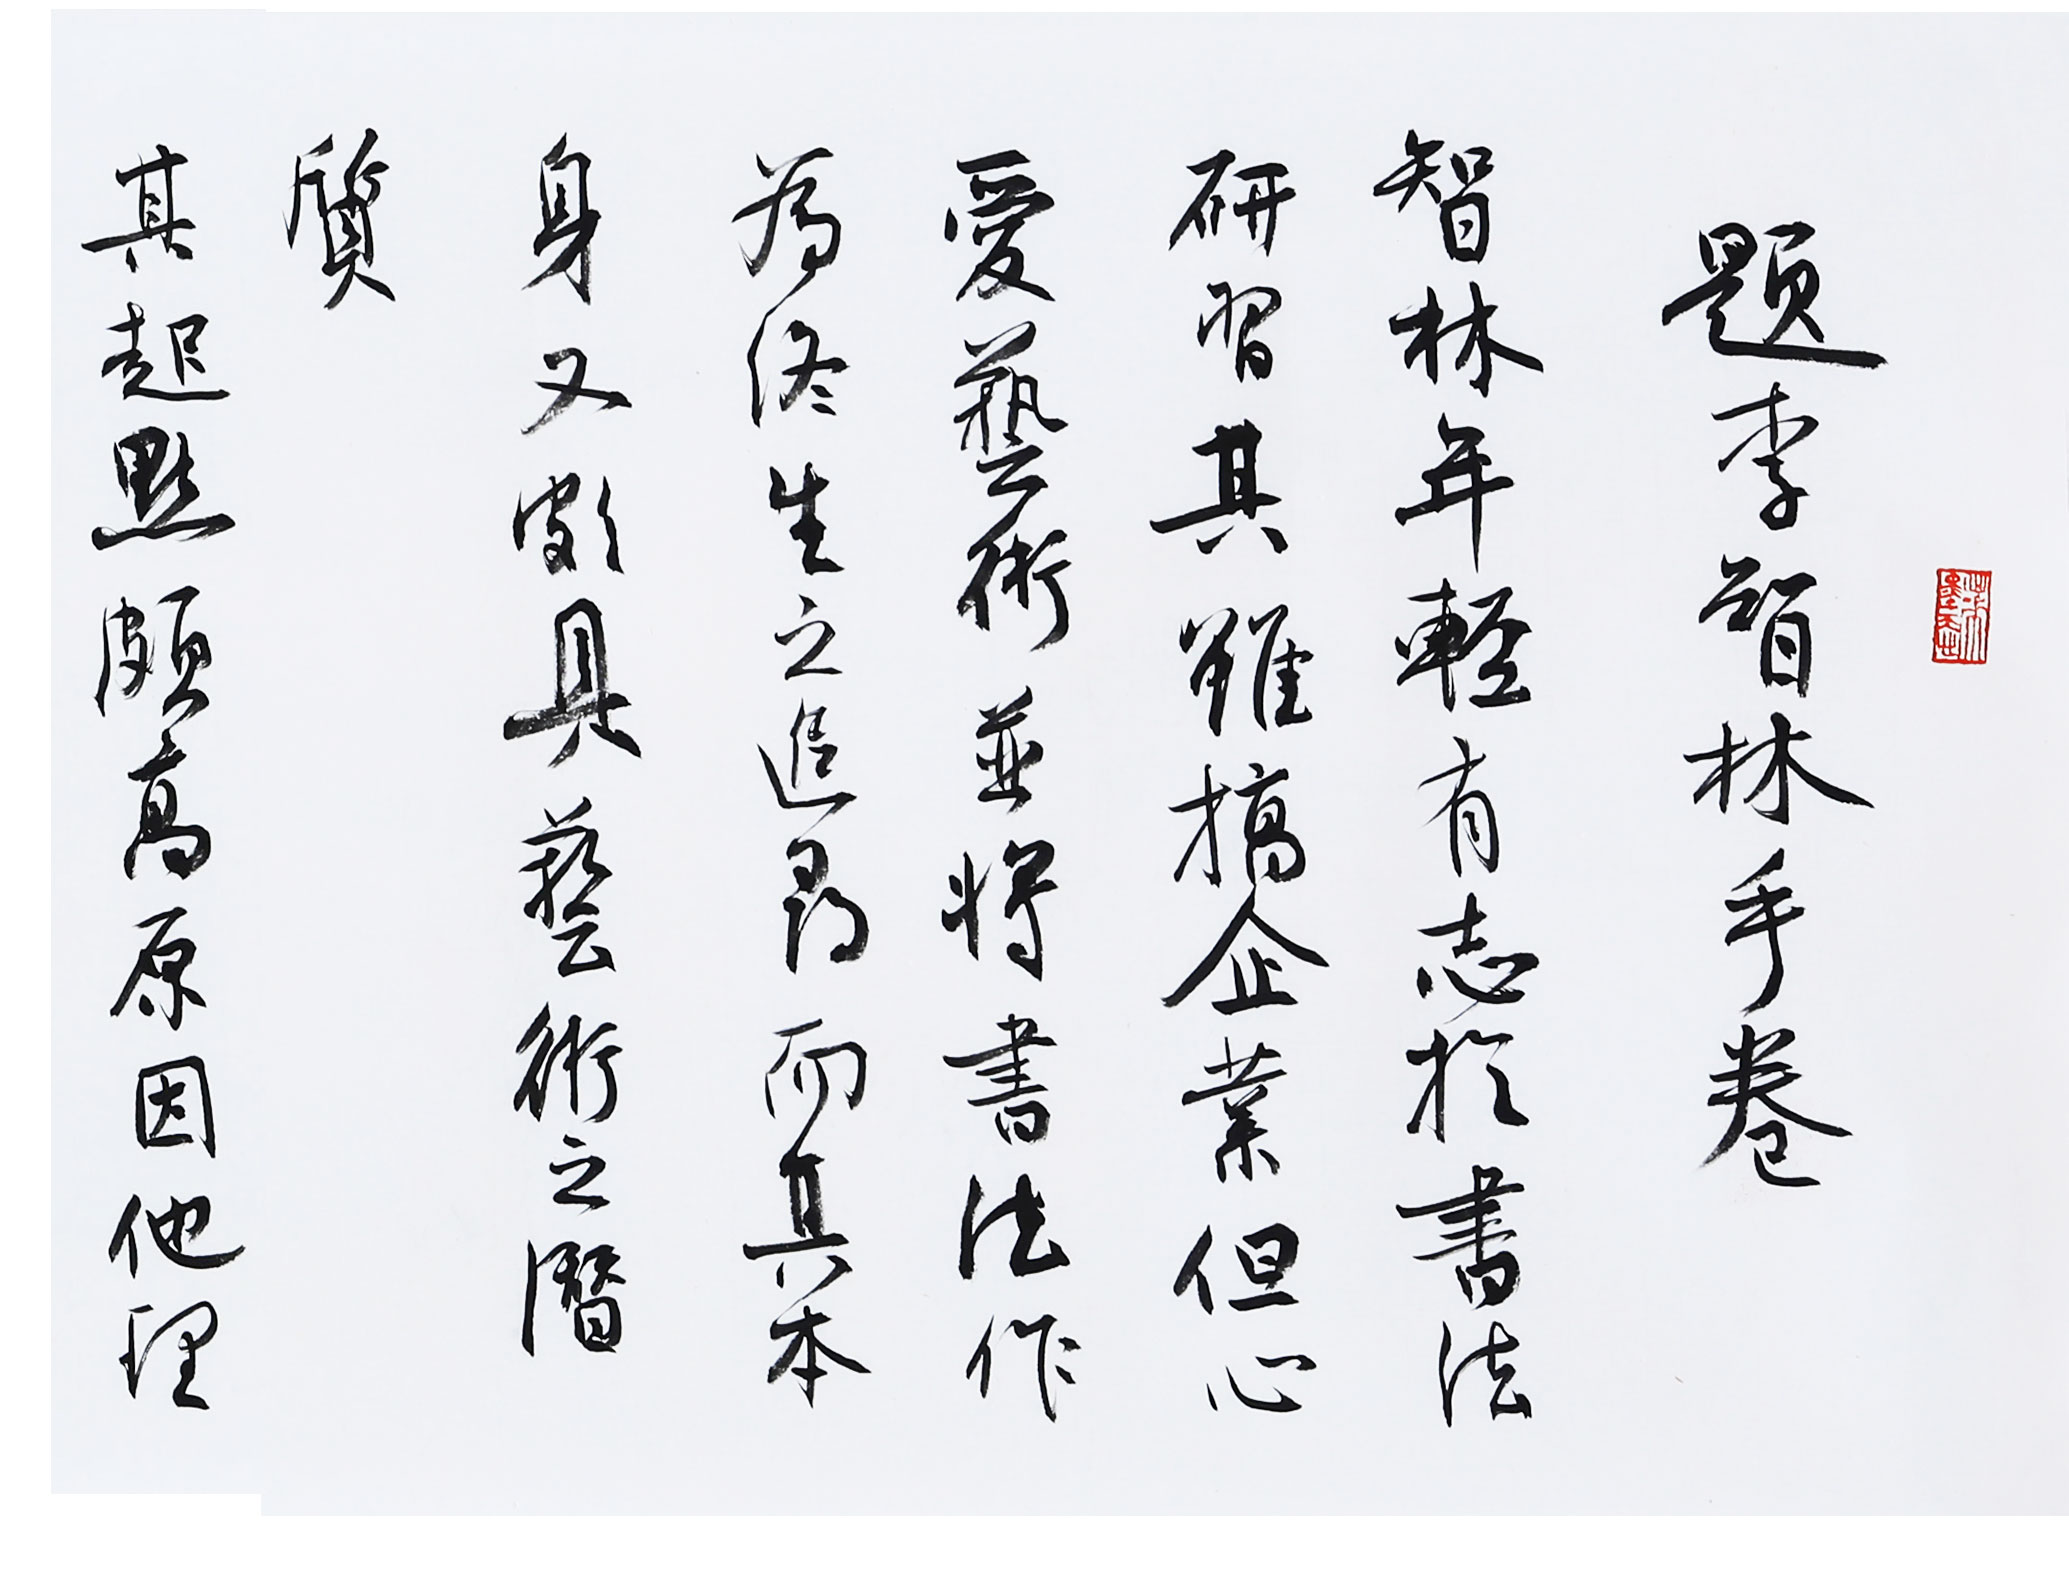 題李智林手卷
智林年輕有志於書法
研習其雖搞企業但心
愛藝術並將書法作
為終生之追尋而其本
身又頗具藝術之潛
質
其起點頗高原因他理